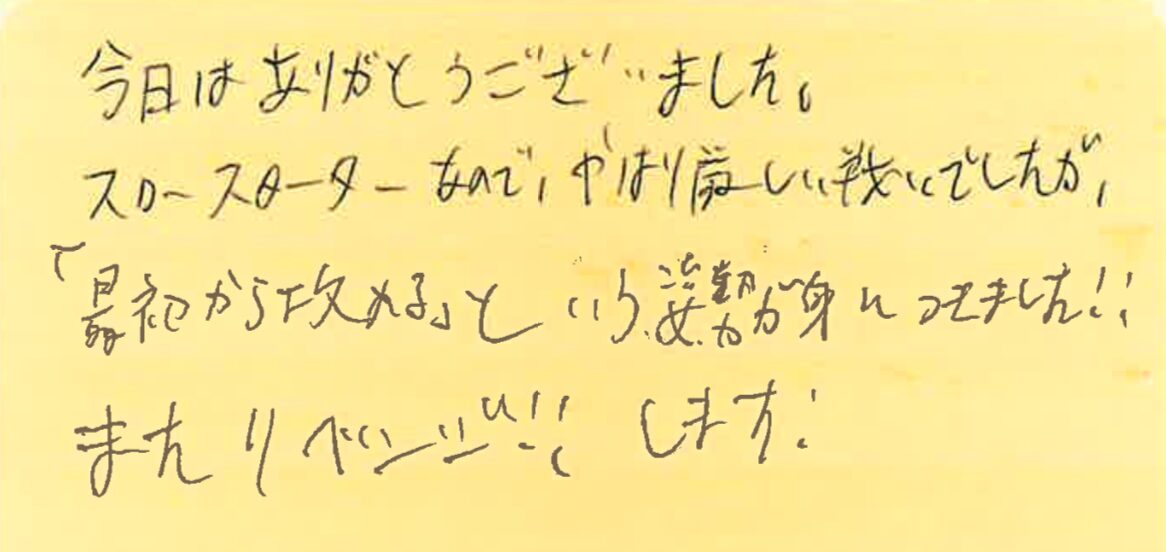 今日はありがとうございました。
スロースターターなので、やはり厳しい戦いでしたが、
「最初から攻める」という姿勢が身につきました!!
またリベンジ!!します!